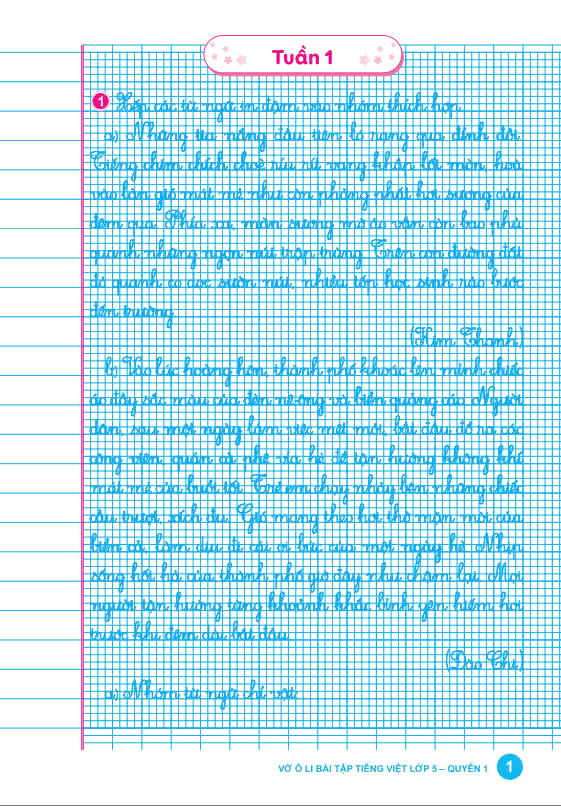 Tuần 1
1 Xếp các từ ngữ in đậm vào nhóm thích hợp.
a) Những tia nắng đầu tiên ló rạng qua đỉnh đồi.
Tiếng chim chích choè ríu rít vang khắp lối mòn, hoà
vào làn gió mát mẻ như còn phảng phất hơi sương của
đêm qua. Phía xa, màn sương mờ ảo vẫn còn bao phủ
quanh những ngọn núi trập trùng. Trên con đường đất
đỏ quanh co dọc sườn núi, nhiều tốp học sinh rảo bước
đến trường.
(Kim Thanh)
b) Vào lúc hoàng hôn, thành phố khoác lên mình chiếc
áo đầy sắc màu của đèn nê-ông và biển quảng cáo. Người
dân, sau một ngày làm việc mệt mỏi, bắt đầu đổ ra các
công viên, quán cà phê vỉa hè để tận hưởng không khí
mát mẻ của buổi tối. Trẻ em chạy nhảy bên những chiếc
cầu trượt, xích đu. Gió mang theo hơi thở mặn mòi của
biển cả, làm dịu đi cái oi bức của một ngày hè. Nhịp
sống hối hả của thành phố giờ đây như chậm lại. Mọi
người tận hưởng từng khoảnh khắc bình yên hiếm hoi
trước khi đêm dài bắt đầu.
(Đào Chi)
a) Nhóm từ ngữ chỉ vật:
VỞ Ô LI BÀI TẬP TIẾNG VIỆT LỚP 5 – QUYỂN 1 1